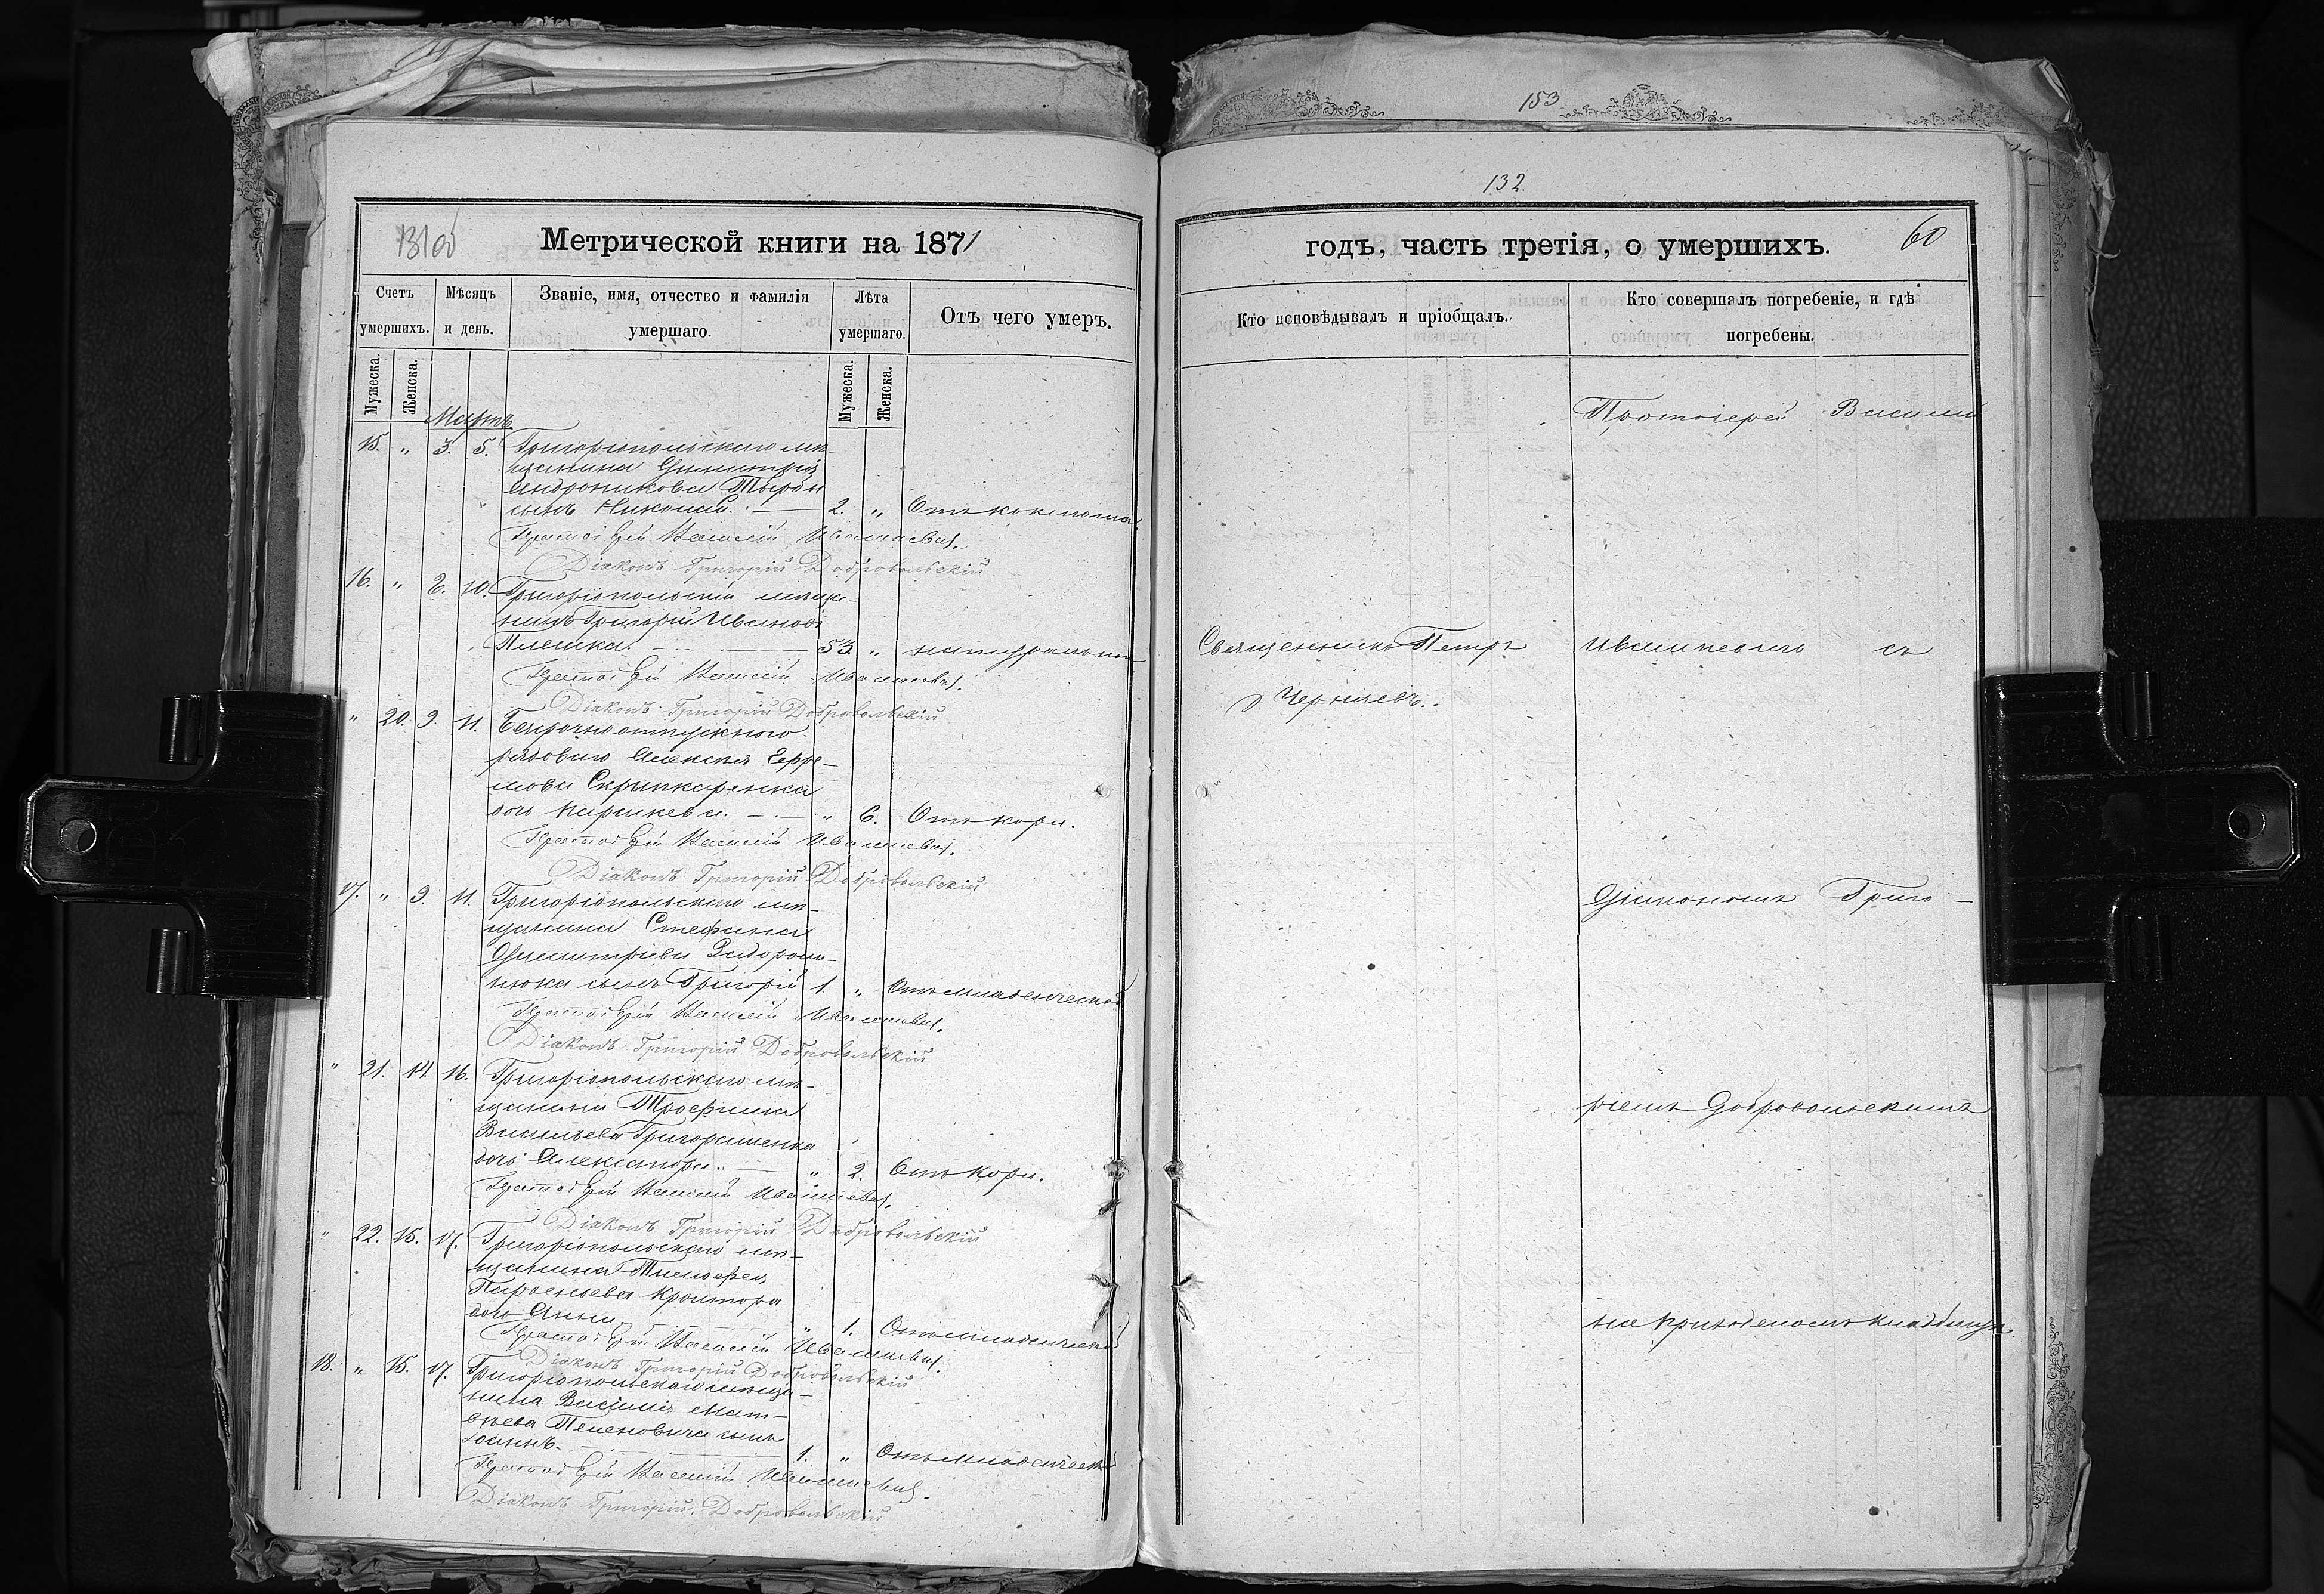 153
132.
Метрической книги на 1871
годъ, часть третія, о умершихъ.
60
Счетъ умершихъ.
Мѣсяцъ и день.
Званіе, имя, отчество и фамилія умершаго.
Лѣта умершаго.
Отъ чего умеръ.
Кто исповѣдывалъ и пріобщалъ.
Кто совершалъ погребеніе, и гдѣ погребены.
Мужеска.
Женска.
Мужеска.
Женска.
Мартъ.
15. " 3. 5. Григоріопольскаго мѣ-
щанина Димитрія
Андроникова
сынъ Николай. 2. " Отъ коклюша
Протоіерей Василій Ивашкевичъ.
Діаконъ Григорій Добровольскій
16. " 8. 10. Григоріопольскій мѣща-
нинъ Григорій Ивановъ
Плешка. 53. " натуральною
Протоіерей Василій Ивашкевичъ.
Діаконъ Григорій Добровольскій
" 20. 9. 11. Безсрочноотпускного
рядового Алексѣя Ефре-
мова Скрыпкаренка
дочь Параскева. " 6. Отъ кори.
Протоіерей Василій Ивашкевичъ.
Діаконъ Григорій Добровольскій
17. " 9. 11. Григоріопольскаго мѣ-
щанина Стефана
Димитріева
сынъ Григорій 1. " Отъ младенческой
Протоіерей Василій Ивашкевичъ.
Діаконъ Григорій Добровольскій
" 21. 14. 16. Григоріопольскаго мѣ-
щанина Трофима
Васильева Григорашенка
дочь Александра. " 2. Отъ кори.
Протоіерей Василій Ивашкевичъ.
Діаконъ Григорій Добровольскій
" 22. 15. 17. Григоріопольскаго мѣ-
щанина Тимофея
Парфеньева Кроитора
дочь Анна. " 1. Отъ младенческой
Протоіерей Василій Ивашкевичъ.
Діаконъ Григорій Добровольскій
18. " 15. 17. Григоріопольскаго мѣща-
нина Василія Мат-
ѳѣева сынъ
Іоаннъ. 1. " Отъ младенческой
Протоіерей Василій Ивашкевичъ.
Діаконъ Григорій Добровольскій
Священникъ Петръ
Чернявъ.
Протоіерей Василій
Ивашкевичъ съ
Діакономъ Григо-
ріемъ Добровольскимъ
на приходскомъ кладбищѣ.